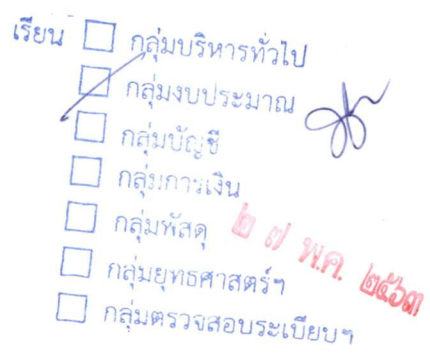 เรียน ☐ กลุ่มบริหารทั่วไป
☐ กลุ่มงบประมาณ
☐ กลุ่มบัญชี
☐ กลุ่มการเงิน
☐ กลุ่มพัสดุ
๒ ๗ พ.ค. ๒๕๖๓
☐ กลุ่มยุทธศาสตร์ฯ
☐ กลุ่มตรวจสอบระเบียบฯ